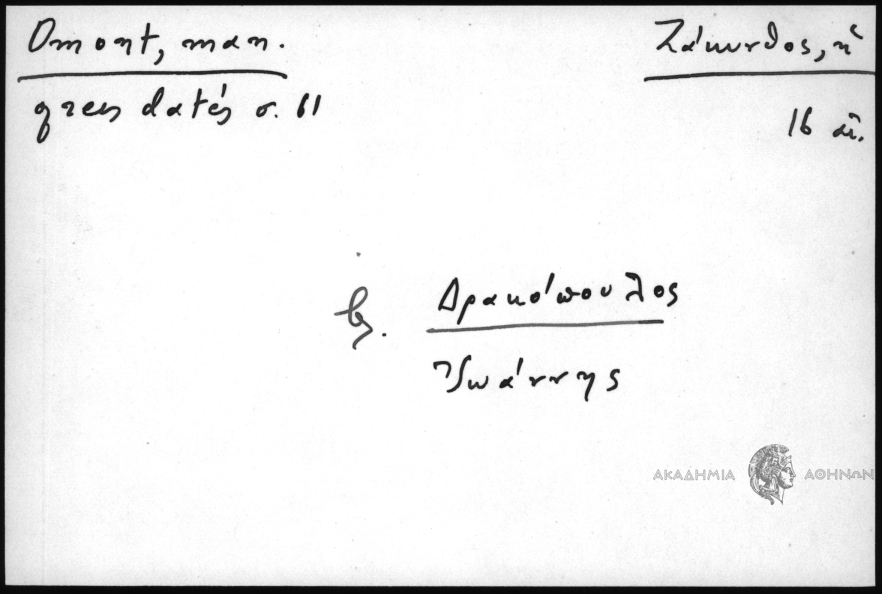 Omont, man.
grecs datés σ. 61
Ζάκυνθος, ἡ
16 αἰ.
β. Δρακόπουλος
Ἰωάννης
ΑΚΑΔΗΜΙΑ ΑΘΗΝΩΝ